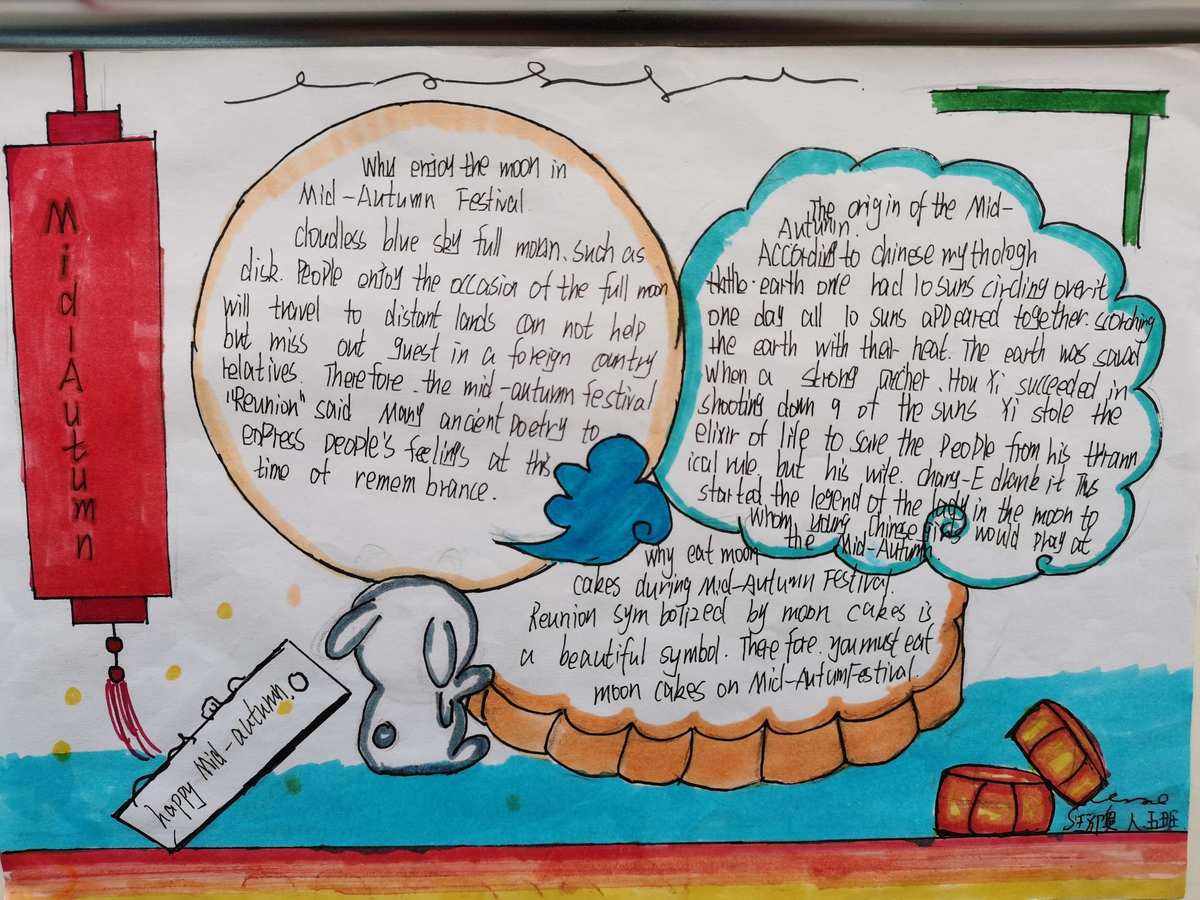 Mid Autumn
Why enjoy the moon in
Mid-Autumn Festival
cloudless blue sky full moan. such as
disk. People enjoy the occasion of the full moon
will travel to distant lands can not help
but miss out guest in a foreign country
relatives. Therefore. the mid-autumn festival
"Reunion" said Many ancient poetry to
express people's feelings at this
time of remem brance.
The origin of the Mid-
Autumn.
According to chinese my thologh
earth one had 10 suns circling over it
one day all 10 suns appeared together. scorching
the earth with their heat. The earth was saved
when a strong archer. Hou Yi succeeded in
shooting down 9 of the suns Yi stole the
elixir of life to save the people from his tyrann
ical rule. but his wife. chang-E drank it This
started the legend of the lady in the moon to
whom young Chinese girls would pray at
the Mid-Autumn.
why eat moon
cakes during Mid-Autumn Festival.
Reunion sym bolized by moon cakes is
a beautiful symbol. There fore. you must eat
moon cakes on Mid-AutumFestival.
happy Mid-autumn.
五班